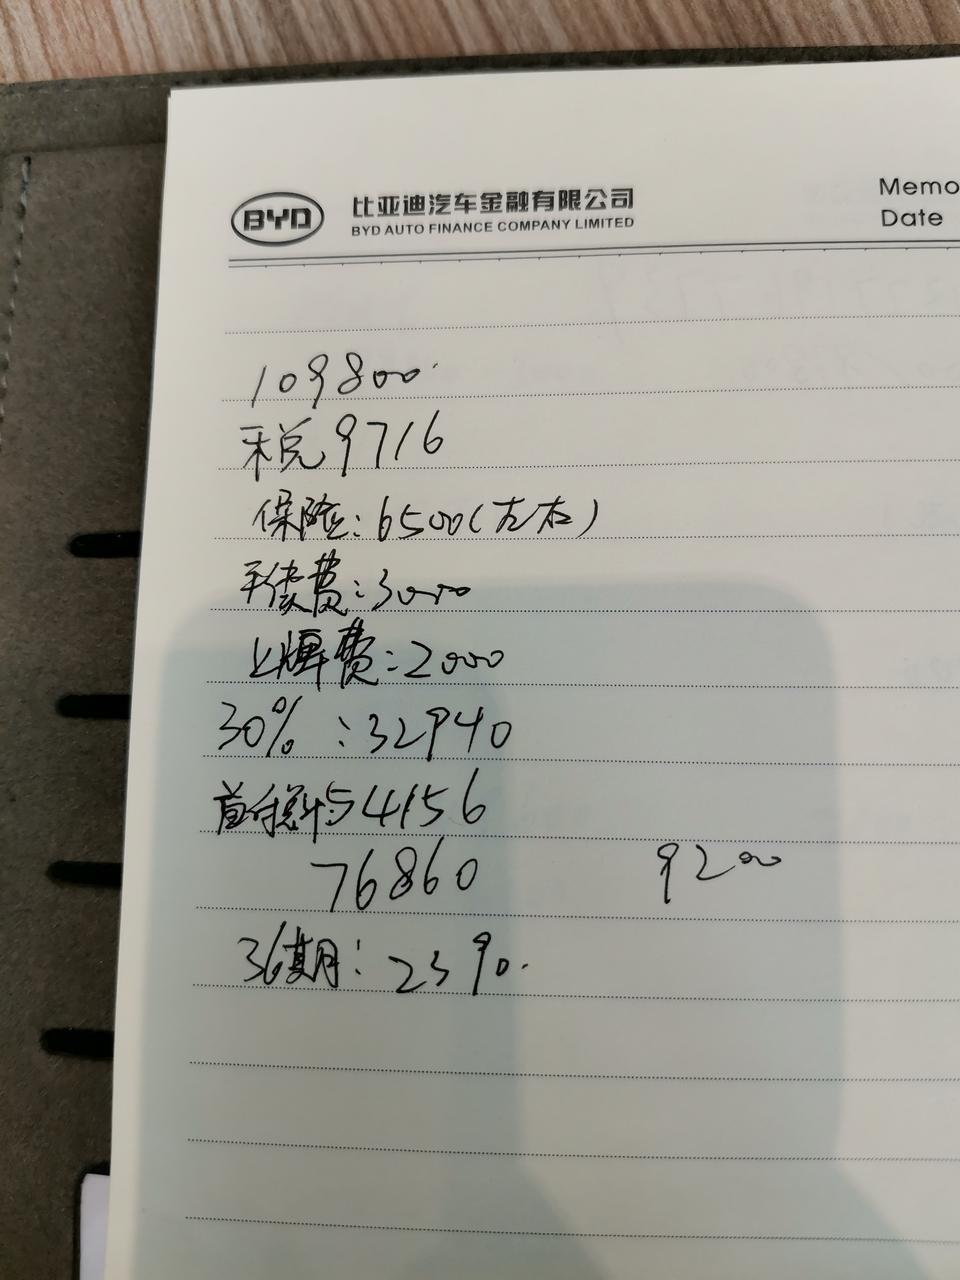 BYD 比亚迪汽车金融有限公司
BYD AUTO FINANCE COMPANY LIMITED
Memo
Date
109800.
税9716
保险:6500(左右)
手续费:3000
上牌费:2000
30%:32940
首付总计:54156
76860 9200
36期:2390.